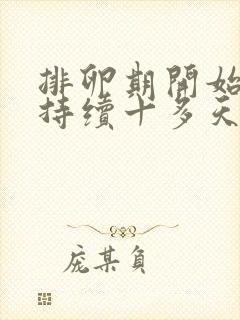 排卵期開始
持續十多天
庞某負